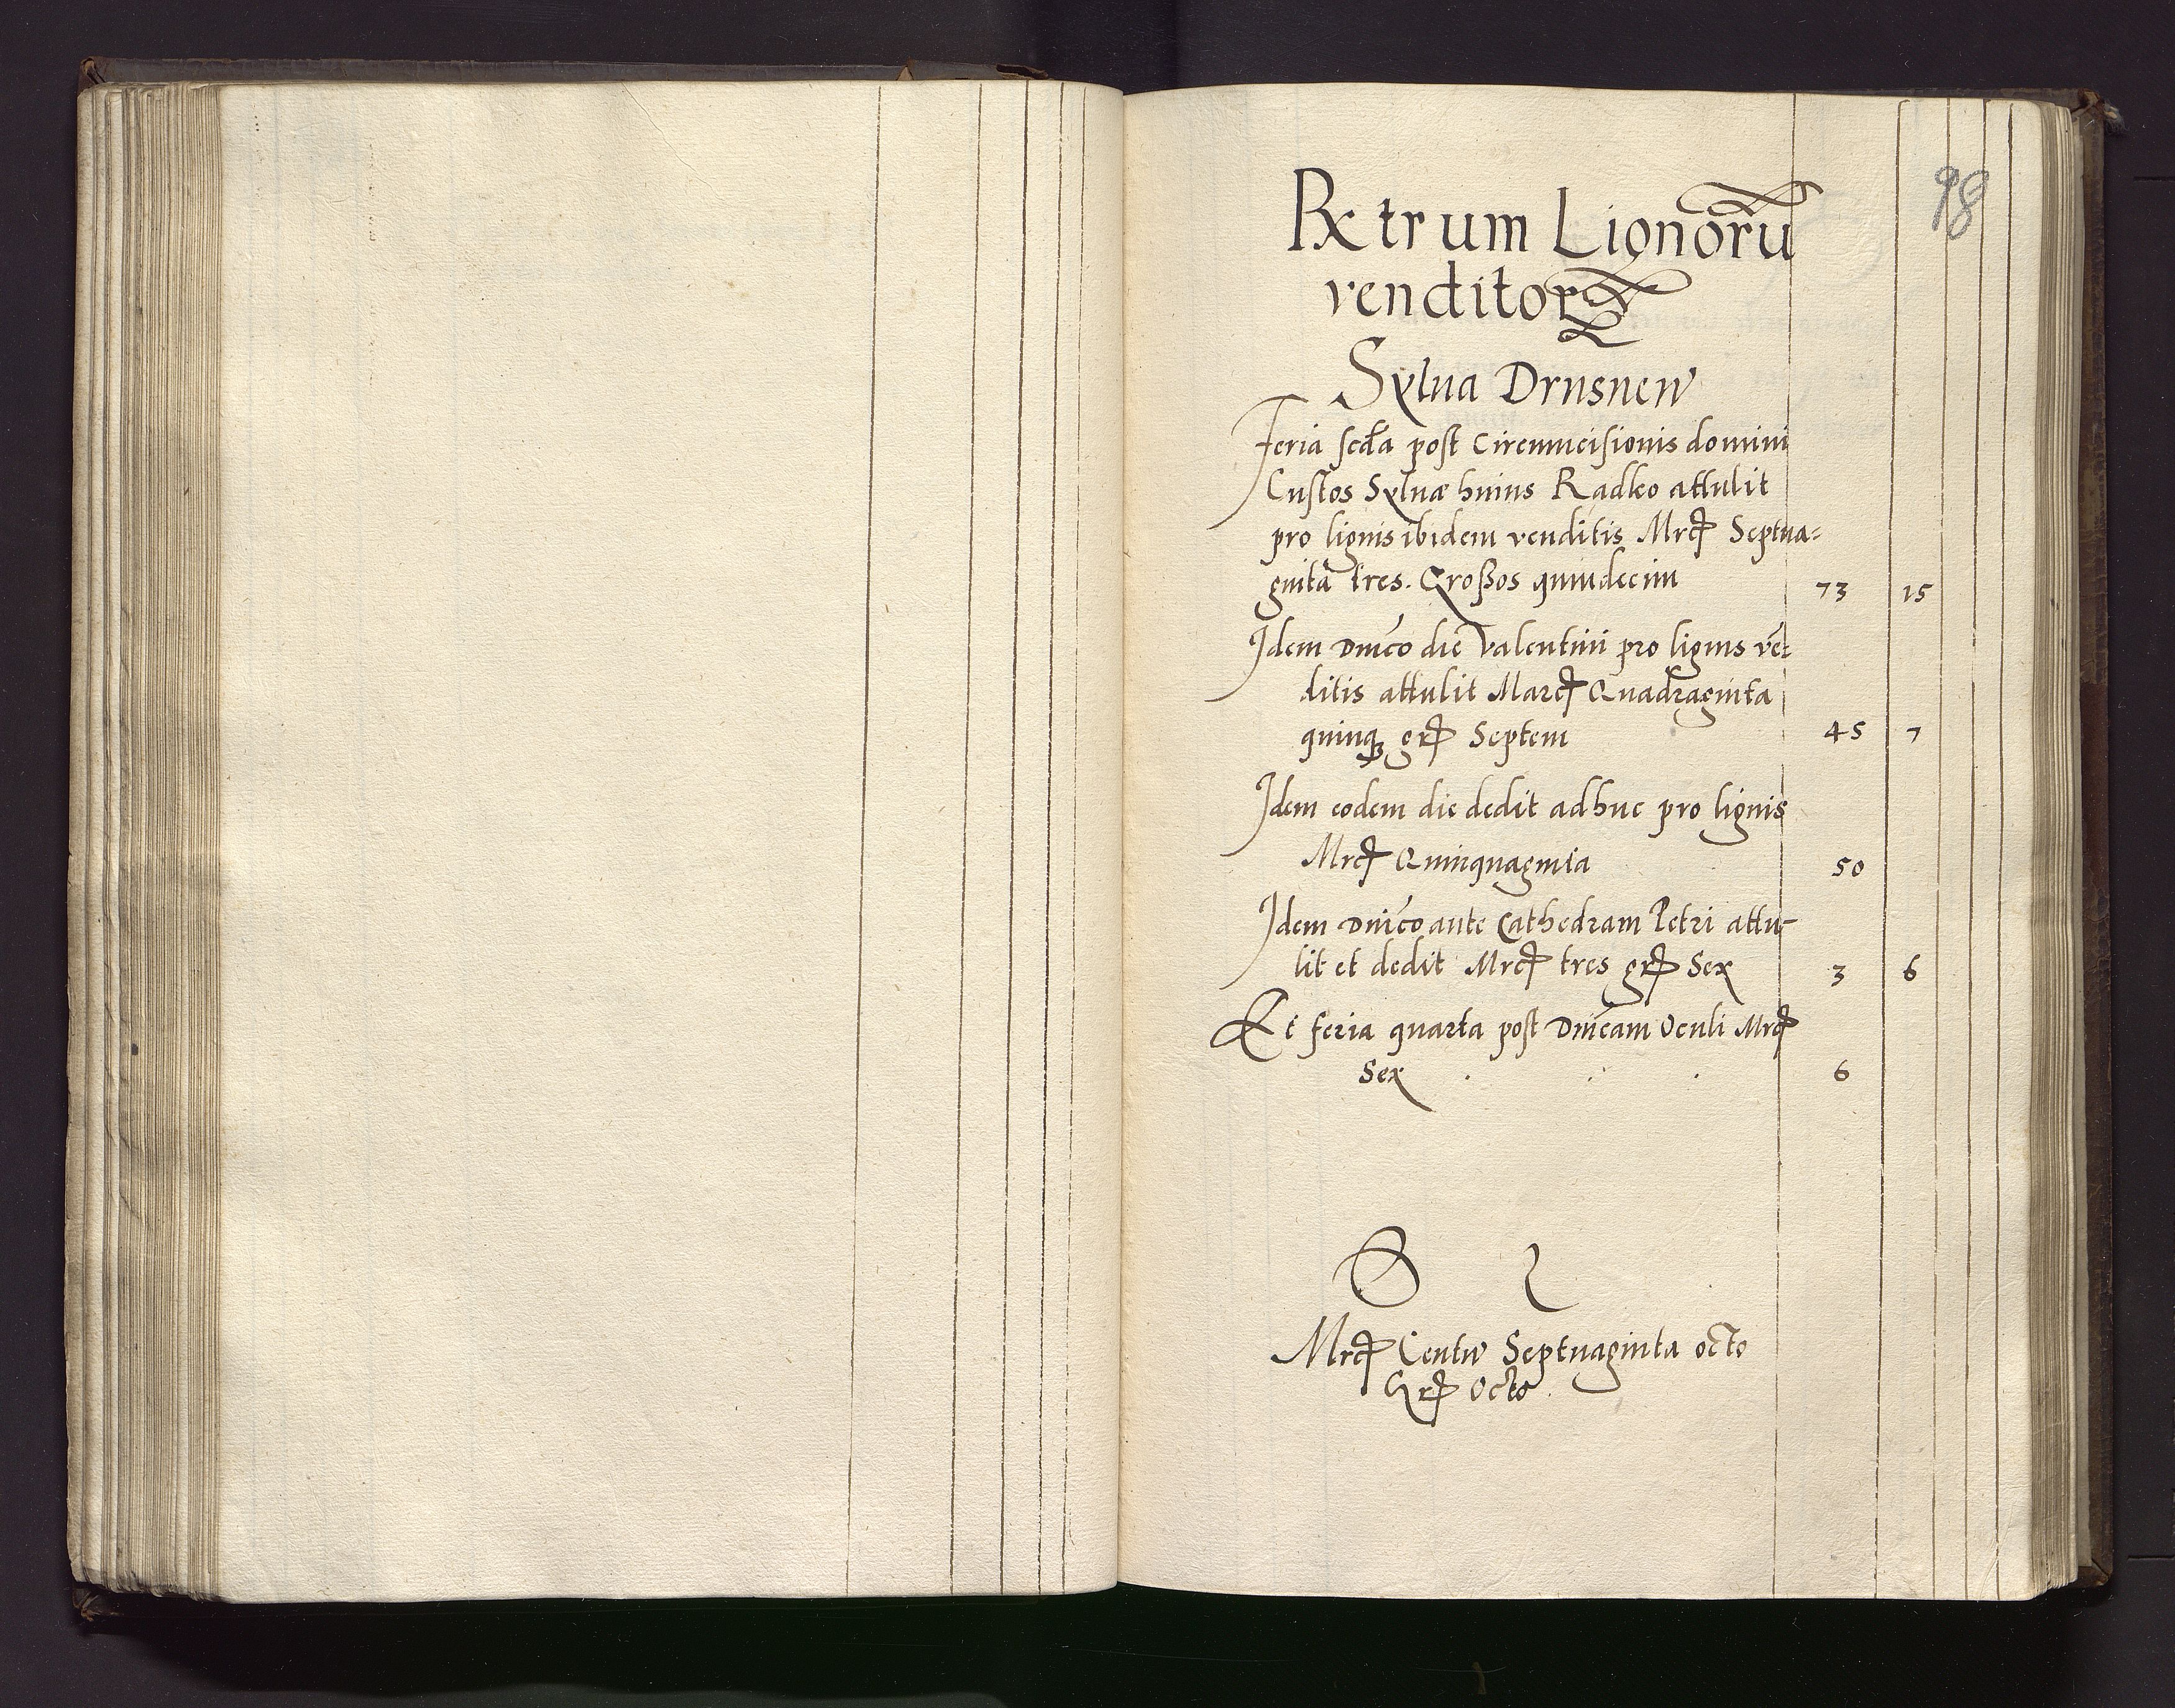 98
Rx trum Lignorũ
venditorꝝ
Sylua Drusnew
Feria scďa post Circumcisionis domini
Custos Syluæ huius Radko attulit
pro lignis ibidem venditis Mrcꝭ Septua=
ginta tres. Großos quindecim 73 15
Idem Dnĩco die Valentini pro lignis vẽ=
ditis attulit Marcꝭ Quadraginta
quinqꝫ grꝭ Septem 45 7
Idem eodem die dedit adhuc pro lignis
Mrcꝭ Quinquaginta 50
Idem Dnĩco ante Cathedram Petri attu-
lit et dedit Mrcꝭ tres grꝭ Sex 3 6
Et feria quarta post Dnĩcam Oculi Mrcꝭ
Sex . . . 6
Mrcꝭ Centũ Septuaginta octo
Grꝭ Octo